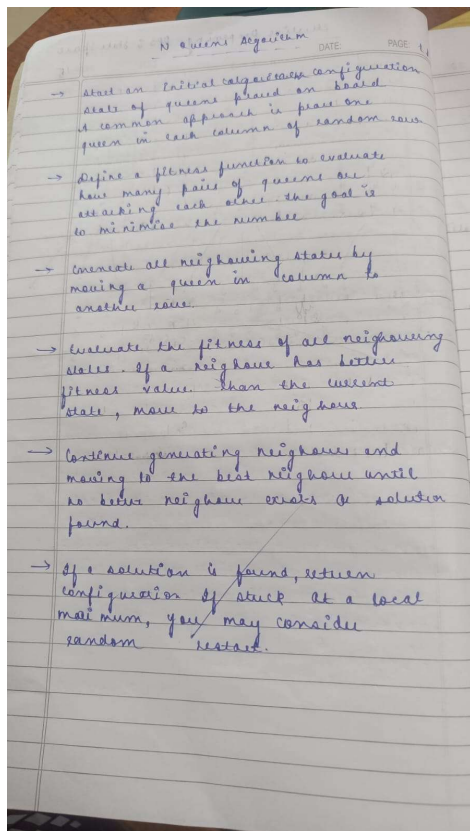 N Queens Algorithm
DATE
PAGE
→ Start an initial configuration
state of queens placed on board
A common approach is place one
queen in each column of random row
→ Define a fitness function to evaluate
how many pairs of queens are
attacking each other. the goal is
to minimise the number
→ Generate all neighouring states by
moving a queen in column to
another row.
→ Evaluate the fitness of all neighouring
states. If a neighour has better
fitness value. than the current
state, move to the neighour
→ Continue generating neighour and
moving to the best neighour until
no better neighour exists or solution
found.
→ If a solution is found, return
configuration If stuck at a local
maimum, you may consider
random restart.